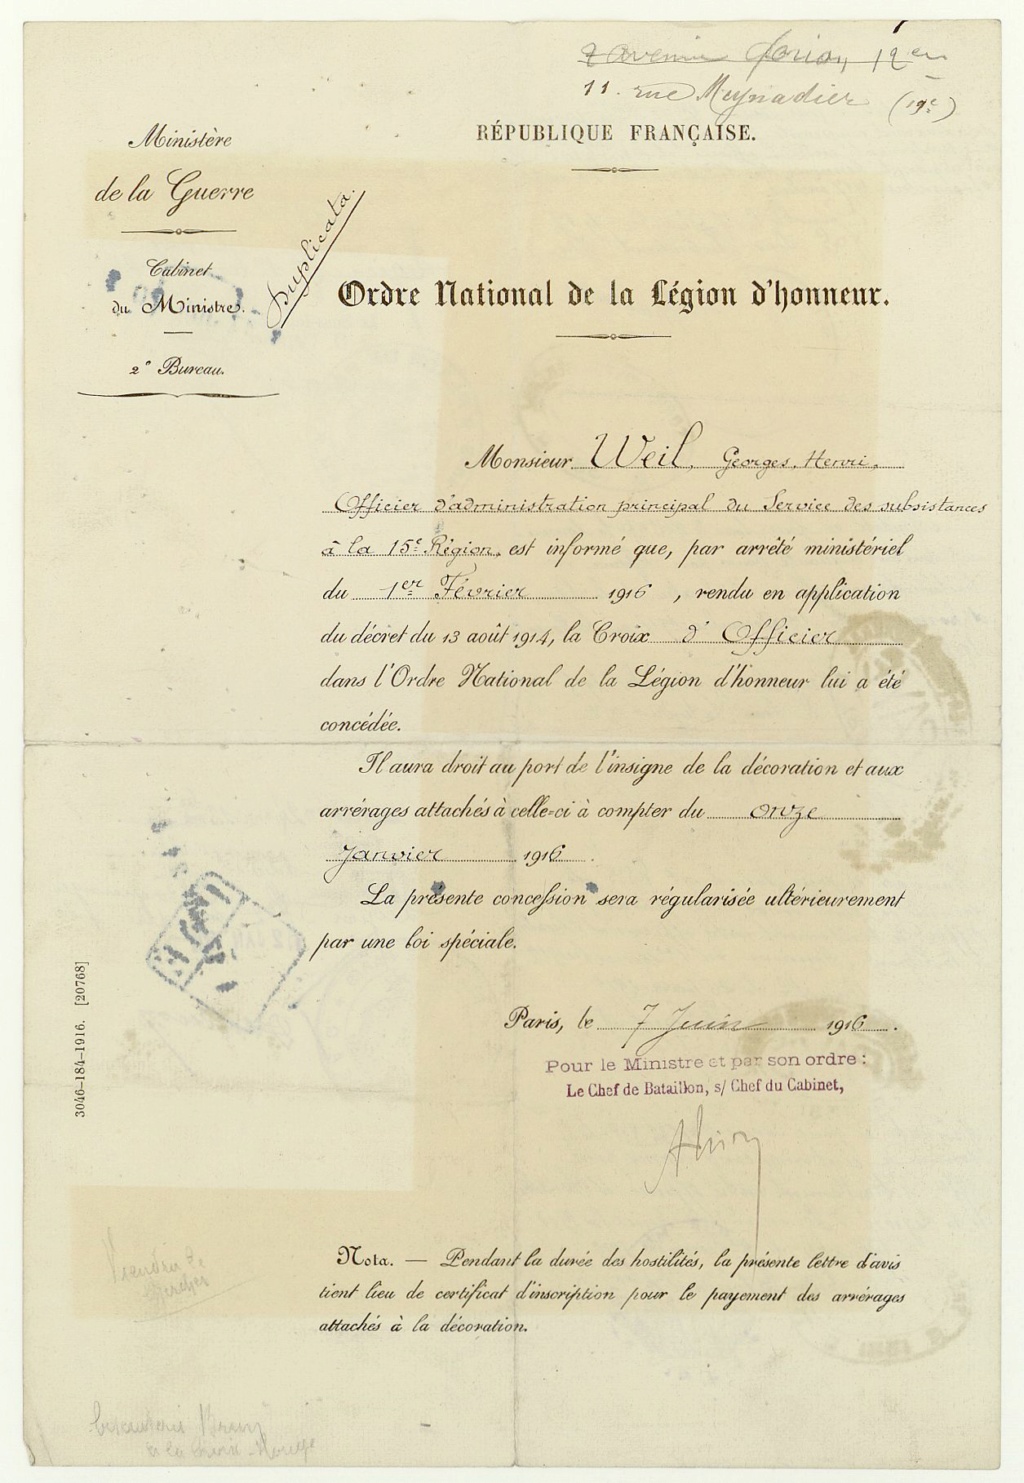 11. rue Meynadier (19e)
RÉPUBLIQUE FRANÇAISE.
Ministère
de la Guerre
Cabinet
du Ministre.
2e Bureau.
Duplicata.
Ordre National de la Légion d'honneur.
Monsieur Weil, Georges, Henri,
Officier d'administration principal du Service des subsistances
à la 15e Région, est informé que, par arrêté ministériel
du 1er Février 1916, rendu en application
du décret du 13 août 1914, la Croix d'Officier
dans l'Ordre National de la Légion d'honneur lui a été
concédée.
Il aura droit au port de l'insigne de la décoration et aux
arrérages attachés à celle-ci à compter du onze
Janvier 1916.
La présente concession sera régularisée ultérieurement
par une loi spéciale.
Paris, le 7 Juin 1916.
Pour le Ministre et par son ordre:
Le Chef de Bataillon, s/ Chef du Cabinet,
3046-184-1916. [20768]
Nota. — Pendant la durée des hostilités, la présente lettre d'avis
tient lieu de certificat d'inscription pour le payement des arrérages
attachés à la décoration.